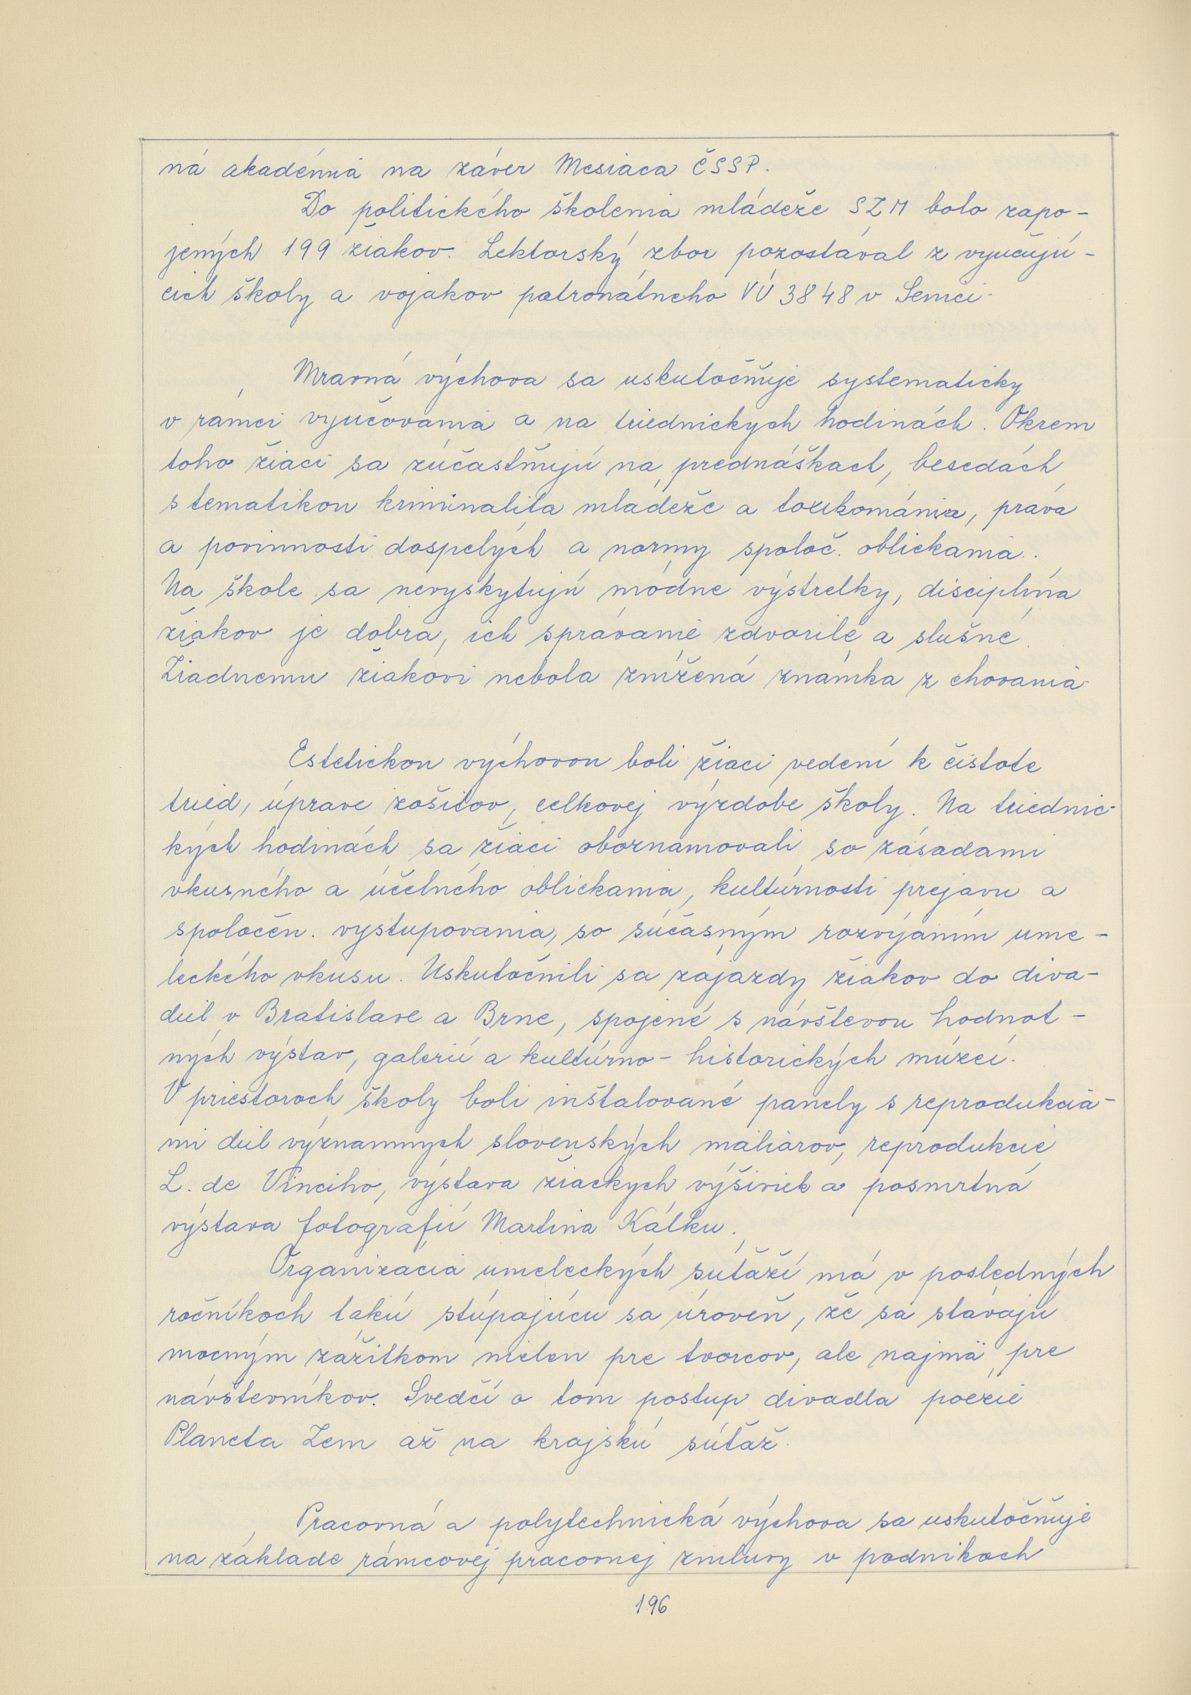 ná akadémia na záver Mesiaca ČSSP.
Do politického školenia mládeže SZM bolo zapo-
jených 199 žiakov. Lektorský zbor pozostával z vyučujú-
cich školy a vojakov patronátneho VÚ 3848 v Senici.
Mravná výchova sa uskutočňuje systematicky
v rámci vyučovania a na triednických hodinách. Okrem
toho žiaci sa zúčastňujú na prednáškach, besedách
s tematikou kriminalita mládeže a toxikománia, práva
a povinnosti dospelých a normy spoloč. obliekania.
Na škole sa nevyskytujú módne výstrelky, disciplína
žiakov je dobrá, ich správanie zdvorilé a slušné.
Žiadnemu žiakovi nebola znížená známka z chovania.
Estetickou výchovou boli žiaci vedení k čistote
tried, úprave zošitov, celkovej výzdobe školy. Na triednic-
kých hodinách sa žiaci oboznamovali so zásadami
vkusného a účelného obliekania, kultúrnosti prejavu a
spoločen. vystupovania, so súčasným rozvíjaním ume-
leckého vkusu. Uskutočnili sa zájazdy žiakov do diva-
diel v Bratislave a Brne, spojené s návštevou hodnot-
ných výstav, galérií a kultúrno-historických múzeí.
V priestoroch školy boli inštalované panely s reprodukcia-
mi diel významných slovenských maliarov, reprodukcie
L. de Vinciho, výstava žiackych výšiviek a posmrtná
výstava fotografií Martina Kálku.
Organizácia umeleckých súťaží má v posledných
ročníkoch takú stúpajúcu sa úroveň, že sa stávajú
mocným zážitkom nielen pre tvorcov, ale najmä pre
návštevníkov. Svedčí o tom postup divadla poézie
Planéta Zem až na krajskú súťaž.
Pracovná a polytechnická výchova sa uskutočňuje
na základe rámcovej pracovnej zmluvy v podnikoch
196